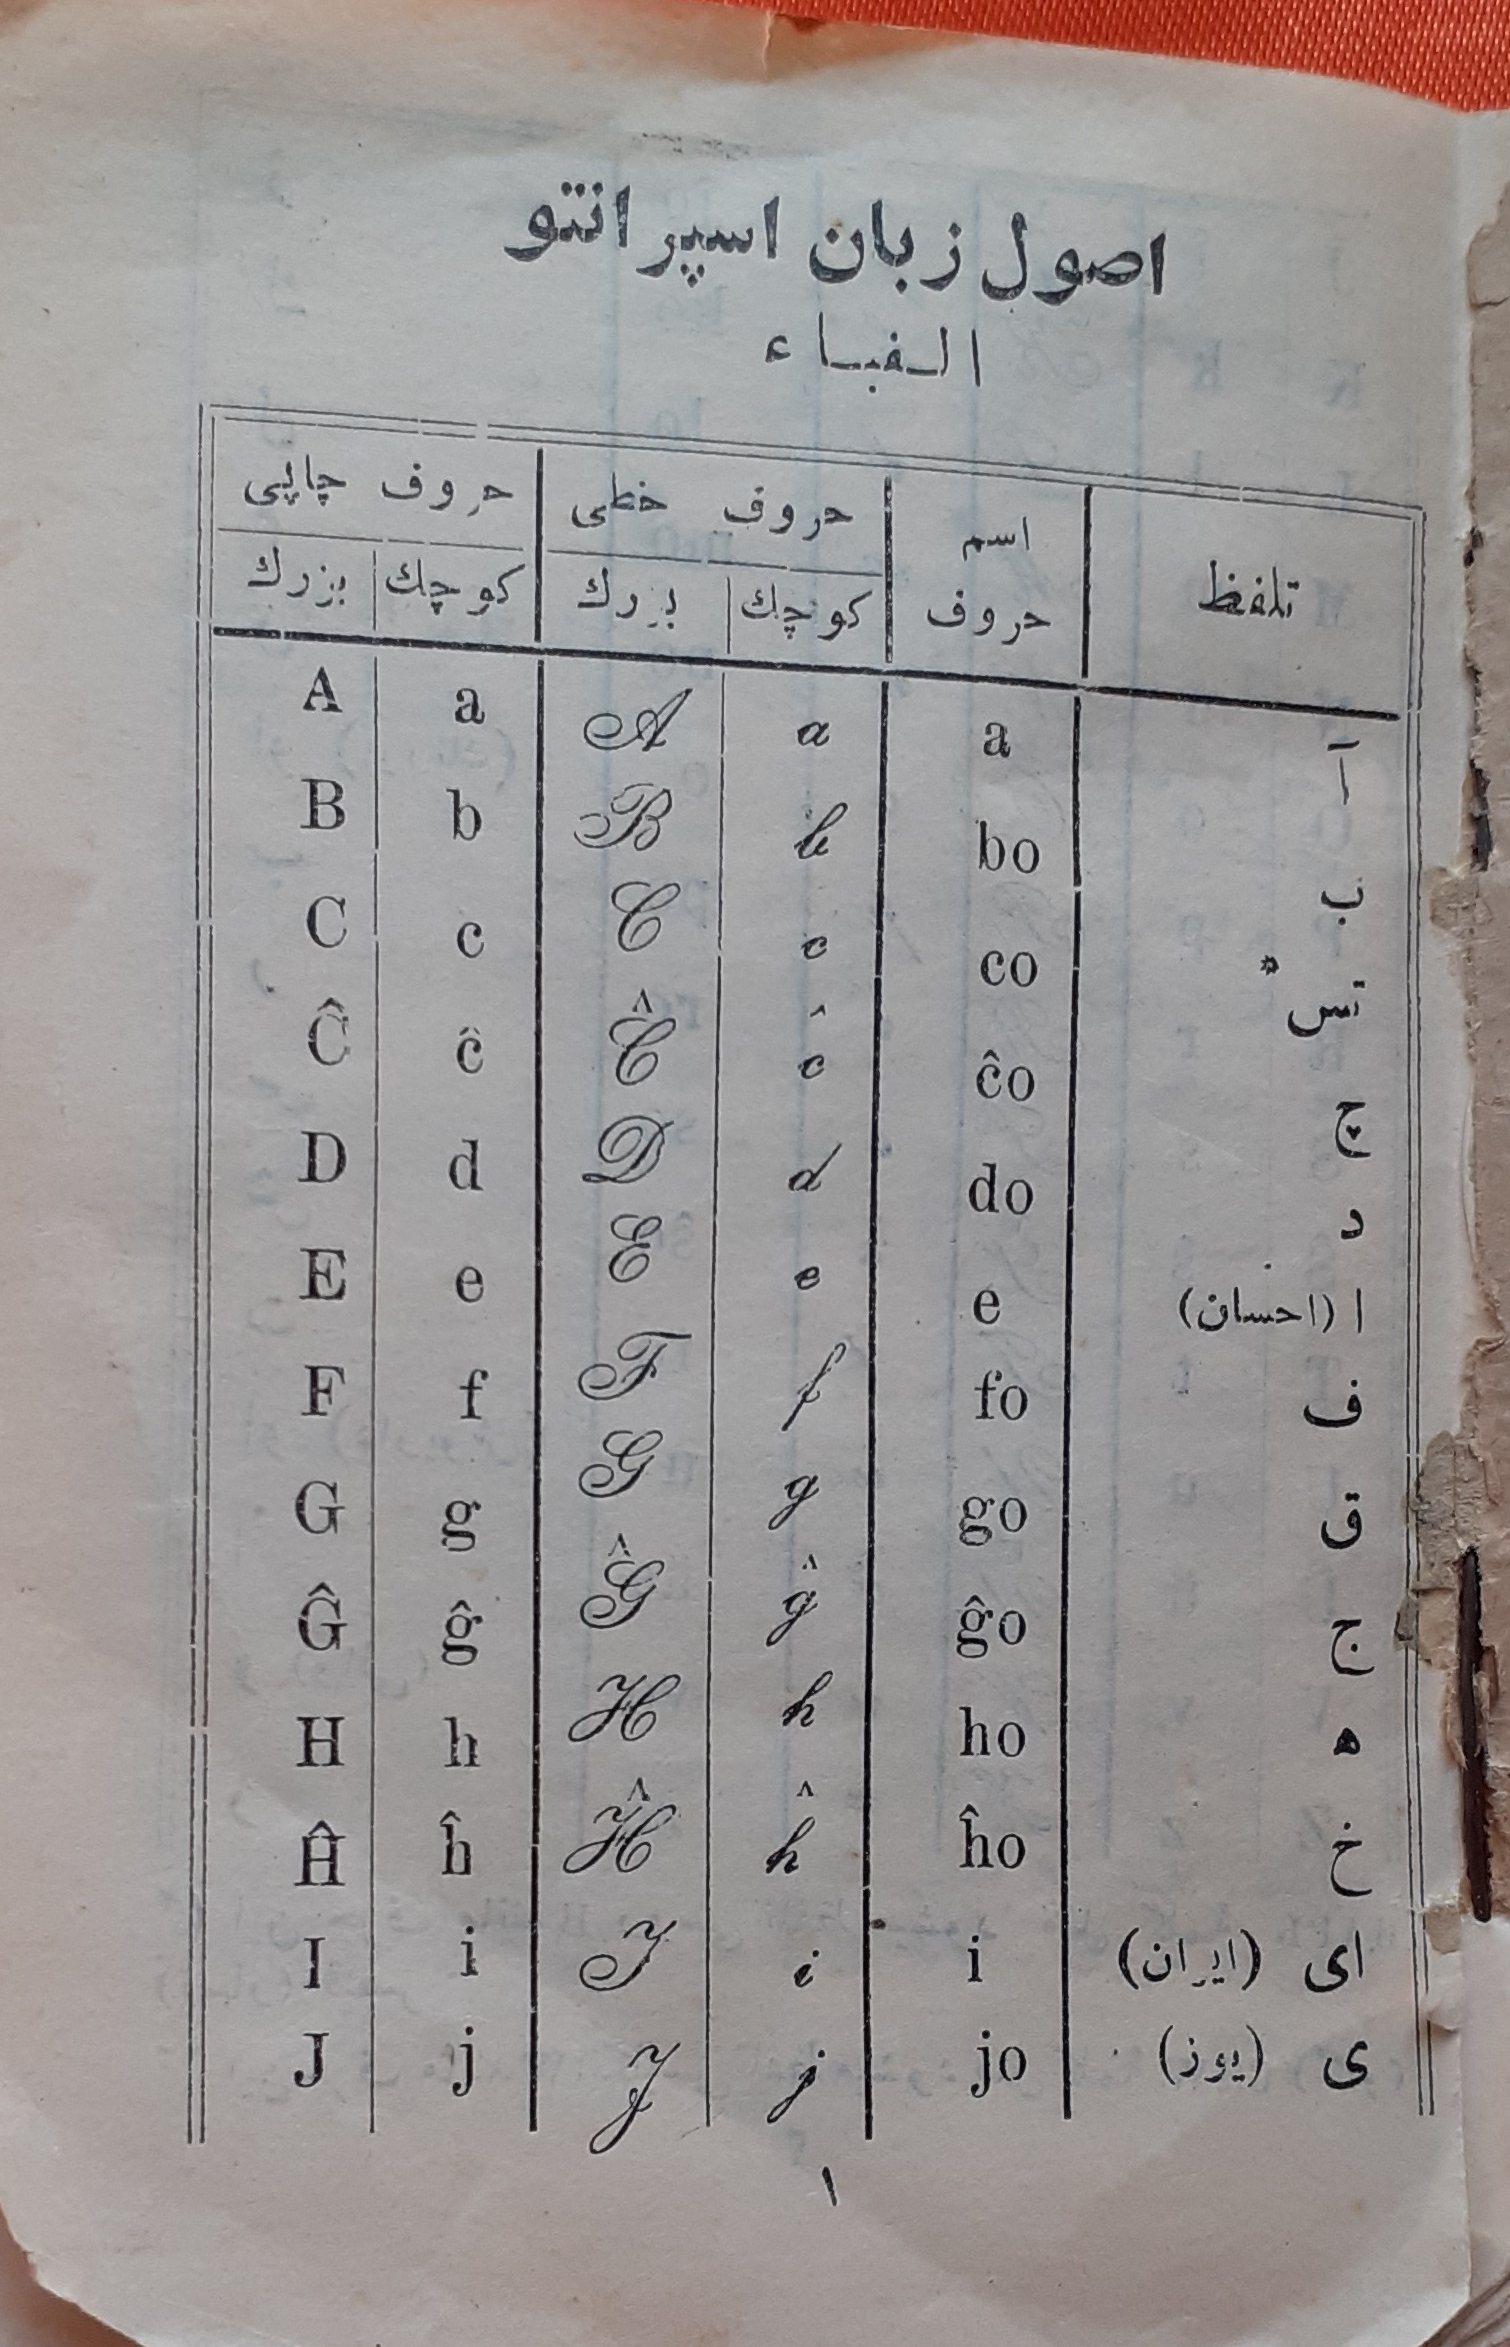 اصول زبان اسپرانتو
الفباء
حروف چاپی حروف خطی اسم حروف تلفظ
بزرك كوچك بزرك كوچك
A a A a a آ
B b B b bo ب
C c C c co تس *
Ĉ ĉ Ĉ ĉ ĉo چ
D d D d do د
E e E e e ا (احسان)
F f F f fo ف
G g G g go ق
Ĝ ĝ Ĝ ĝ ĝo ج
H h H h ho ه
Ĥ ĥ Ĥ ĥ ĥo خ
I i I i i ای (ایران)
J j J j jo ی (یوز)
۱